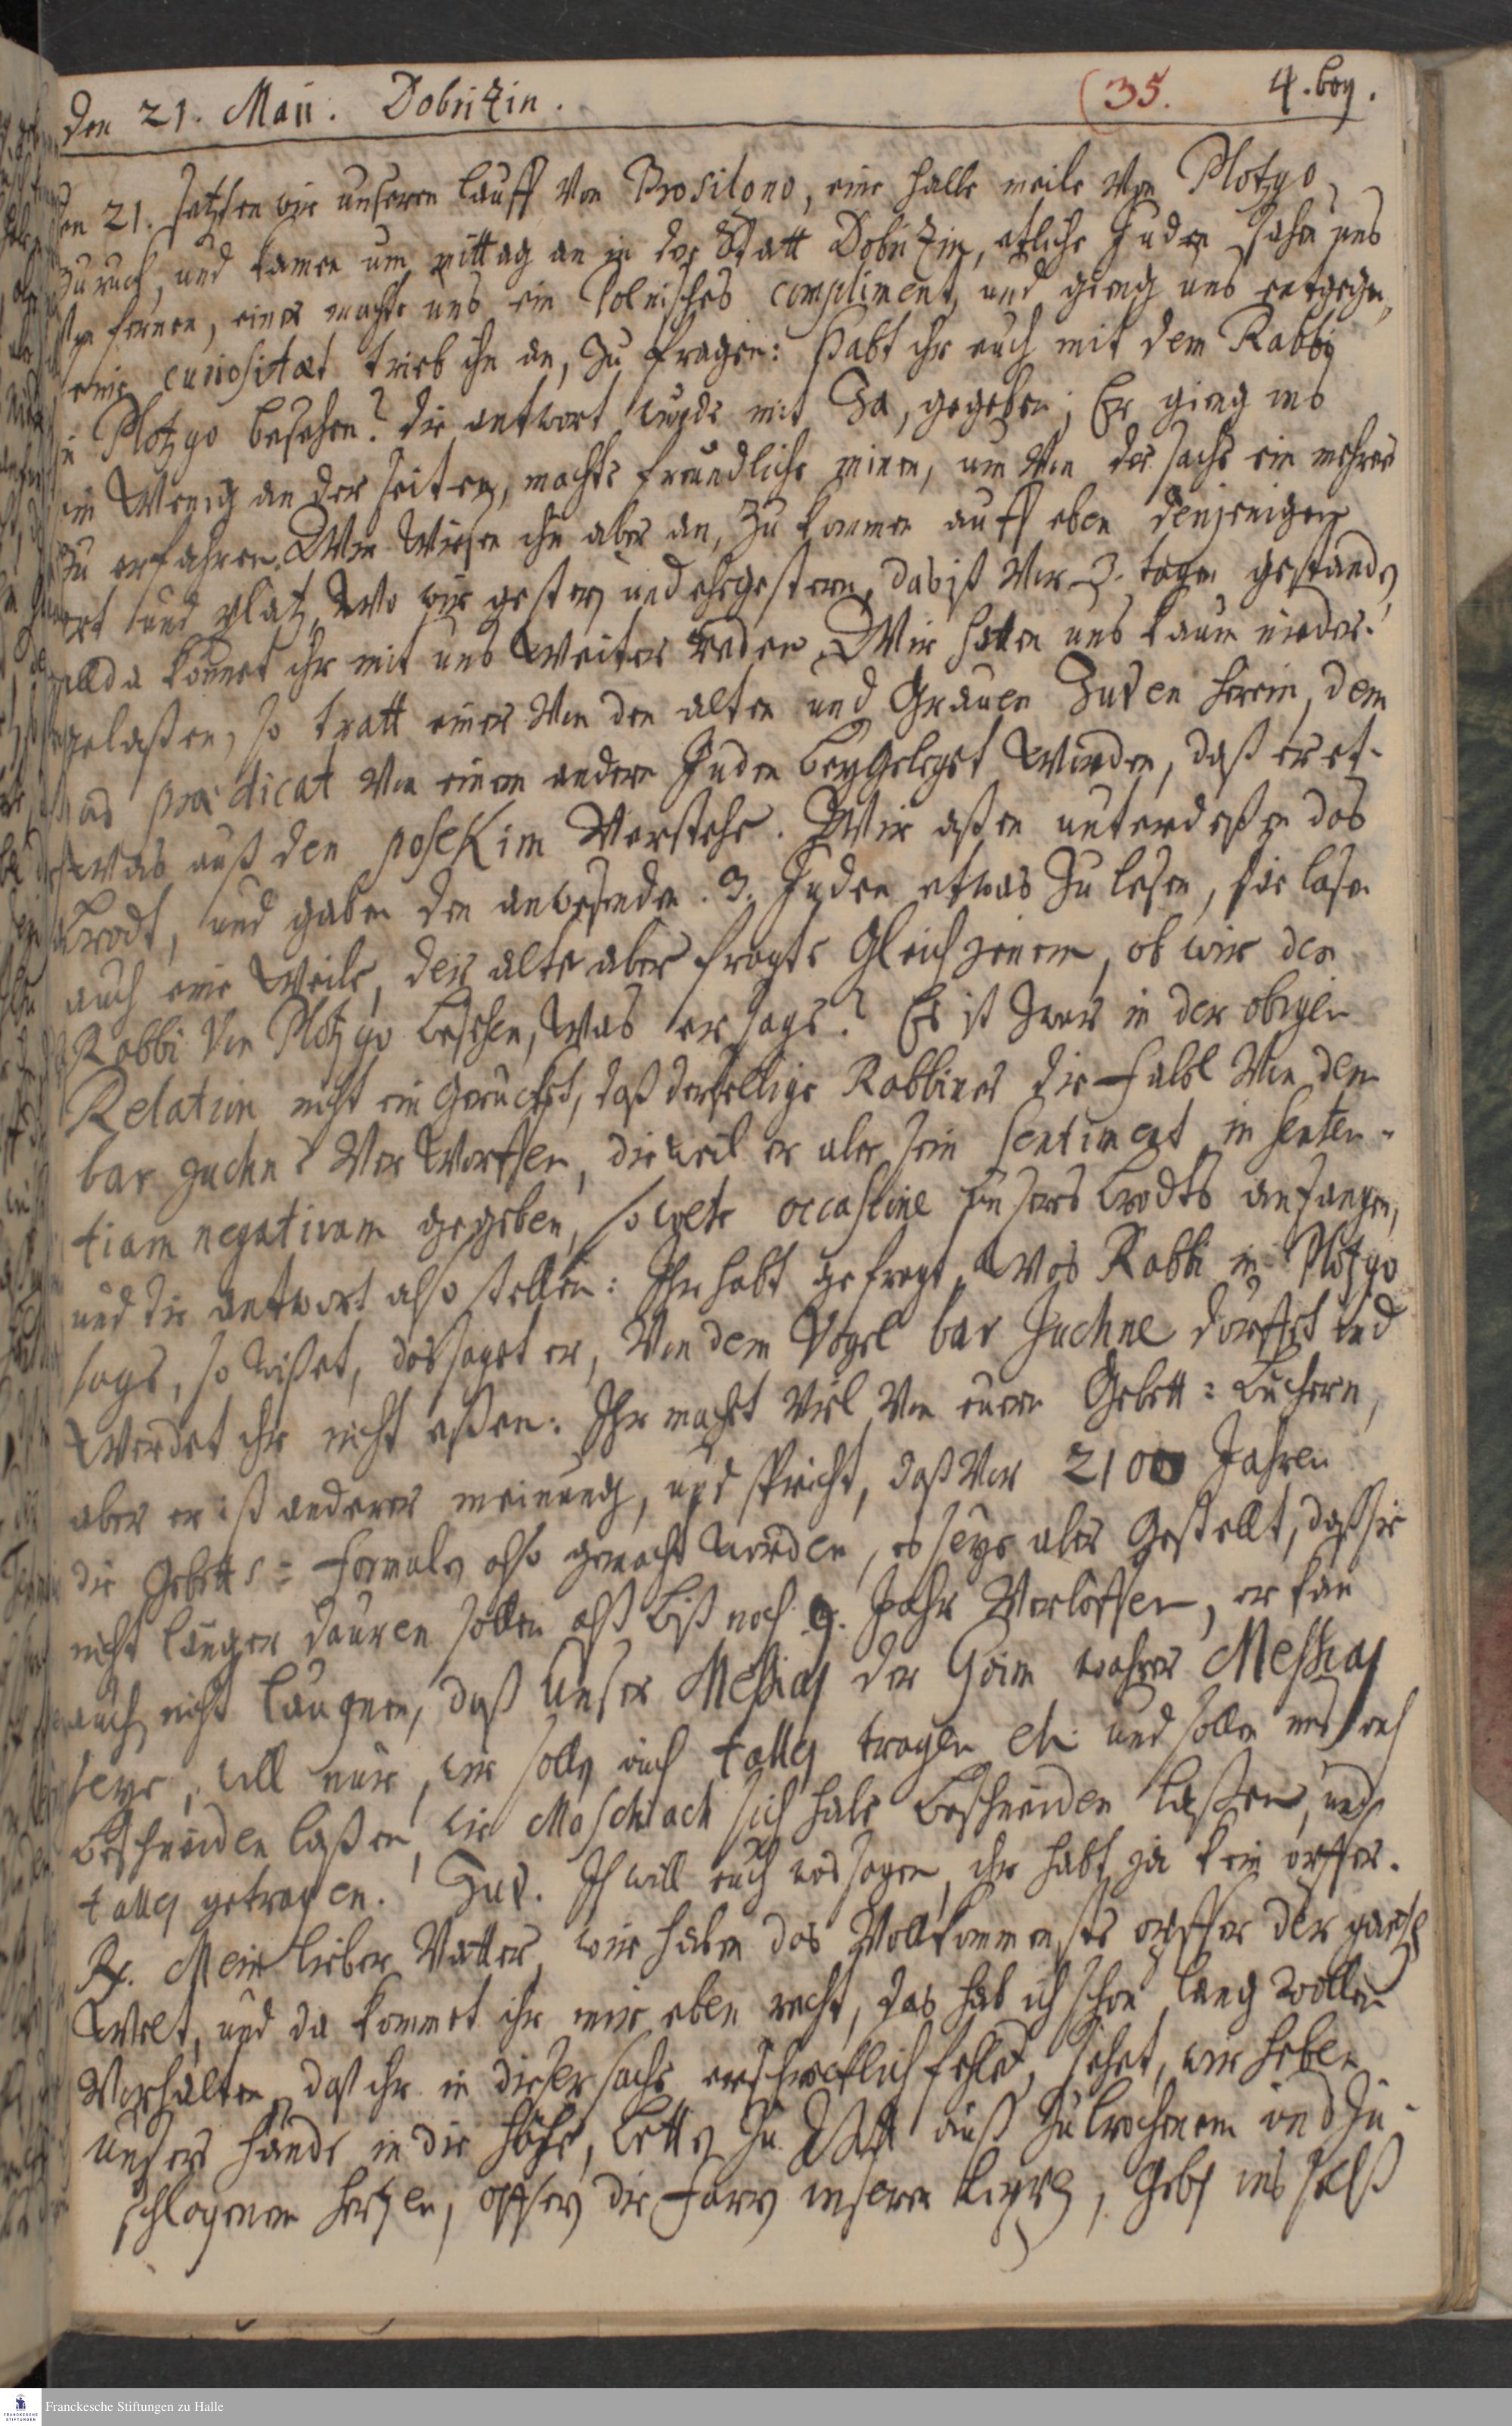 den 21. Maii. Dobritzin. (35. 4. bog.
den 21. setzten wir unseren lauff von Brosilono, eine halbe meile von Plotzgo
zuruck, und kamen um mittag an in der Statt Dobritzin, etliche Juden sahen uns
von fernen, einer machte uns ein Polnisches compliment, und gieng uns entgegen,
eine curiositæt trieb ihn an, zu fragen: habt ihr auch mit dem Rabbi
in Plotzgo besehen? die antwort wurde mit Ja, gegeben; Er gieng uns
ein Wenig an der seiten, machte freundliche minen, um von der sache ein mehrers
zu erfahren. Wir wiesen ihn aber an, zu kommen auff eben denjenigen
ort und platz, Wo wir gestern und ehegestern, das ist vor 3. tagen gestanden,
allda könnet ihr mit uns Weiter reden. Wir hatten uns kaum nieder-
gelaßen, so tratt einer von den alten und Grauen Juden herein, dem
das prædicat von einem andern Juden beygelegt Wurden, daß er et-
was auß den posekim Verstehe. Wir aßen unterdeßen das
Brodt, und gaben den anwesenden 3. Juden etwas zu lesen, sie lasen
auch eine Weile, der alte aber fragte Gleich jenem, ob wir den
Rabbi von Plotzgo besehen, Was er sage? Es ist zwar in der obigen
Relation nicht ein Gerucket, daß derselbige Rabbiner die Fabl Von dem
bar juchne Verworffen, dieweil er aber sein sentiment in senten-
tiam negativam gegeben, so wolte occasione unsers brodts anfangen,
und die antwort also stellen: Ihr habt gefragt, Was Rabbi in Plotzgo
sage, so wißet, das saget er, Von dem Vogel bar Juchne dörffet und
Werdet ihr nicht eßen: Ihr machet viel von euern Gebett-Büchern,
aber er ist anderer meinung, und spricht, daß vor 2100 Jahren
die Gebetts-Formuln also gemacht worden, es seye aber Gestellt, daß sie
nicht länger dauren sollen alß biß noch 9. Jahr Verloffen, er kan
auch nicht läugnen, daß Unser Messias der Goim wahrer Messias
seye, will nur, wir sollen auch talles tragen etc. und sollen uns auch
beschneiden laßen, wie Maschiach sich habe beschneiden laßen, und
talles getragen. Jud. Ich will euch was sagen, ihr habt ja kein opffer.
Rx. Mein lieber Vatter, wir haben das Vollkommenste opffer der gantzen
Welt, und da kommet ihr mir eben recht, das hab ich schon lang wollen
Vorhalten, daß ihr in dieser sache erschrecklich fehlet, sehet, wir heben
unsere hände in die höhe, betten zu GOtt auß zubrochenem und zu-
schlagenem hertzen, opffern die Farren unserer Lippen, Geben uns selbst
Franckesche Stiftungen zu Halle